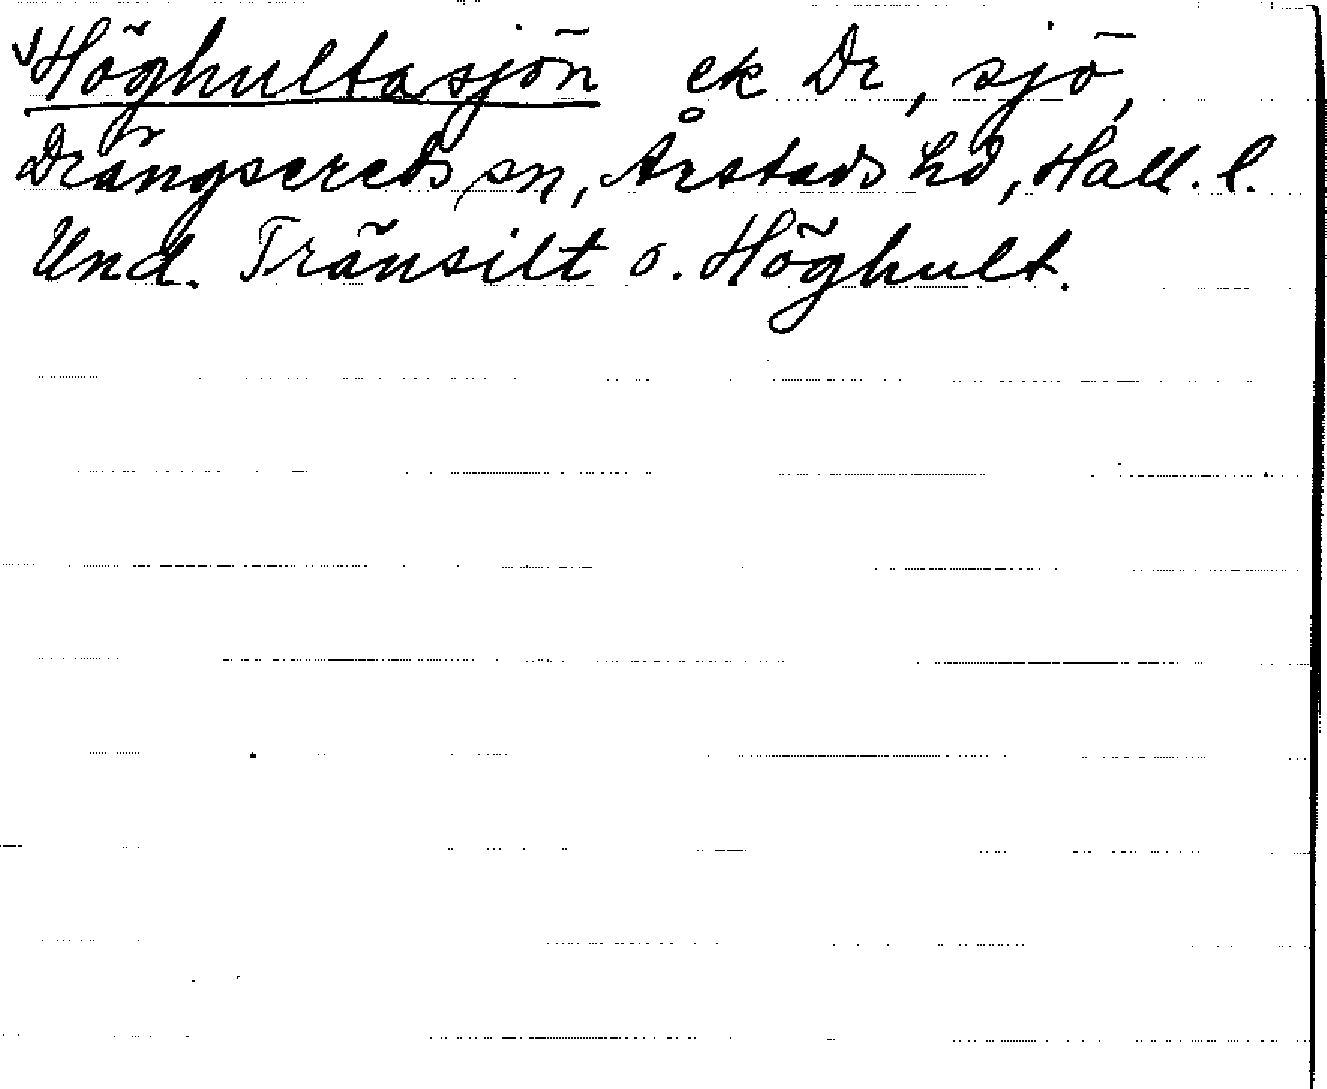 Höghultasjön ek Dr, sjö,
Drängsereds sn, Årstads hd, Hall. l.
Und. Tränsilt o. Höghult.